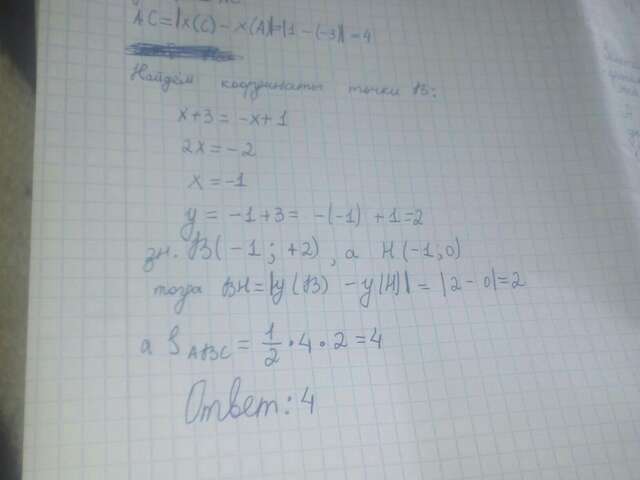 AC=|x(C) - x(A)|=|1 - (-3)| = 4
Найдём координаты точки B:
x+3 = -x+1
2x = -2
x = -1
y = -1+3 = -(-1) +1=2
зн. B(-1; +2), а H(-1;0)
тогда BH=|y(B) - y(H)| = |2 - 0|=2
а S ABC = 1/2 · 4 · 2 = 4
Ответ: 4